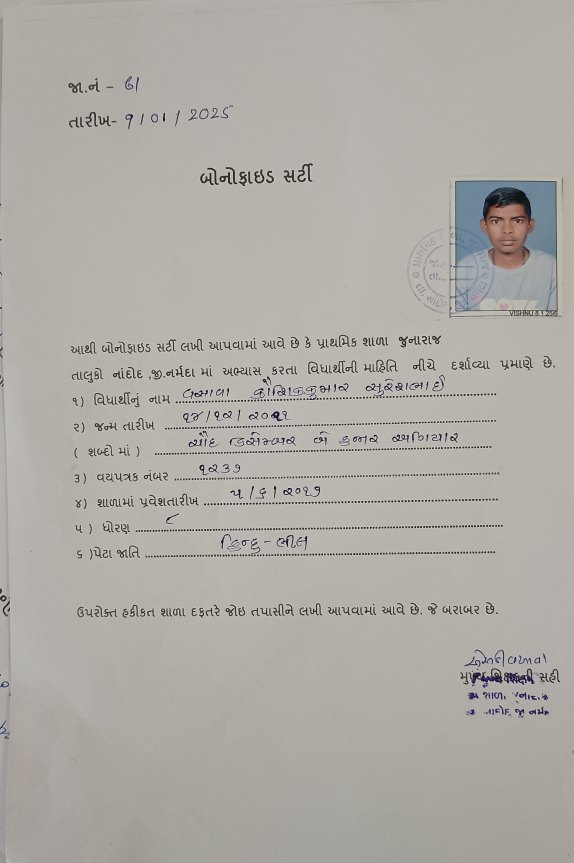 જા.નં - 61
તારીખ- 9/01/2025
બોનોફાઇડ સર્ટી
VISHNU 8.1.25/6
આથી બોનોફાઇડ સર્ટી લખી આપવામાં આવે છે કે પ્રાથમિક શાળા જુનારાજ
તાલુકો નાંદોદ ,જી.નર્મદા માં અભ્યાસ કરતા વિધાર્થીની માહિતિ નીચે દર્શાવ્યા પ્રમાણે છે.
૧) વિધાર્થીનું નામ વસાવા કૌશિકકુમાર સુરેશભાઈ
૨) જન્મ તારીખ ૧૪/૧૨/૨૦૧૧
( શબ્દો માં ) ચૌદ ડિસેમ્બર બે હજાર અગિયાર
૩) વયપત્રક નંબર ૧૨૩૭
૪) શાળામાં પ્રવેશતારીખ ૫/૬/૨૦૧૭
૫ ) ધોરણ ૮
૬ )પેટા જાતિ હિન્દુ - ભીલ
ઉપરોક્ત હકીકત શાળા દફતરે જોઇ તપાસીને લખી આપવામાં આવે છે. જે બરાબર છે.
મુખ્ય શિક્ષકની સહી